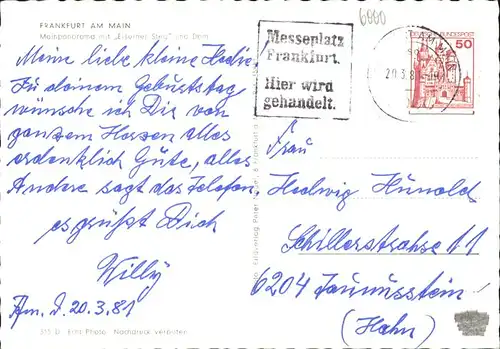 6000
FRANKFURT AM MAIN
Mainpanorama mit „Eisernem Steg“ und Dom
Meine liebe kleine Hedie!
Zu deinem Geburtstag
wünsche ich Dir von
ganzem Herzen alles
erdenklich Gute, alles
Andere sagt das Telefon.
es grüßt Dich
Willy
Ffm. d. 20.3.81
315 D Echt Photo Nachdruck verboten
Messeplatz
Frankfurt.
Hier wird
gehandelt.
AM MAIN
20.3.81
DEUTSCHE BUNDESPOST
50
Frau
Hedwig Hunold
Schillerstrahse 11
6204 Taunusstein
(Hahn)